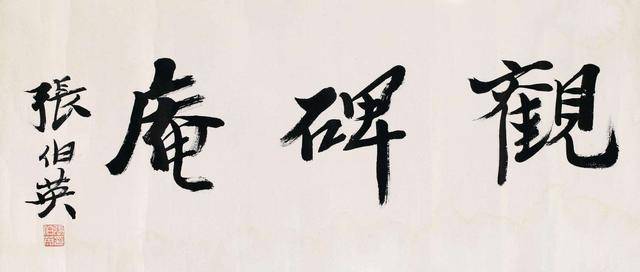 觀碑庵
張伯英